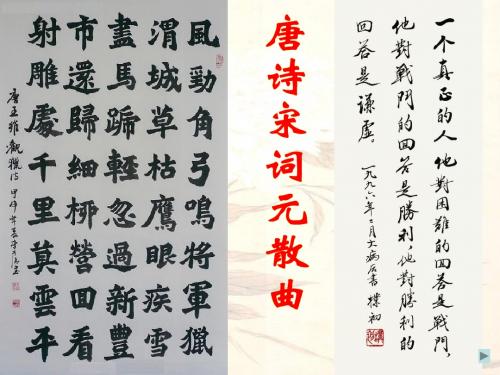 一个真正的人他對困難的回答是戰鬥，
他對戰鬥的回答是勝利，他對勝利的
回答是謙虛。
一九九六年 月大病后書 樸初
唐诗宋词元散曲
風勁角弓鳴將軍獵
渭城草枯鷹眼疾雪
盡馬蹄輕忽過新豐
市還歸細桺營回看
射雕處千里莫雲平
唐王維觀獵詩 甲申年